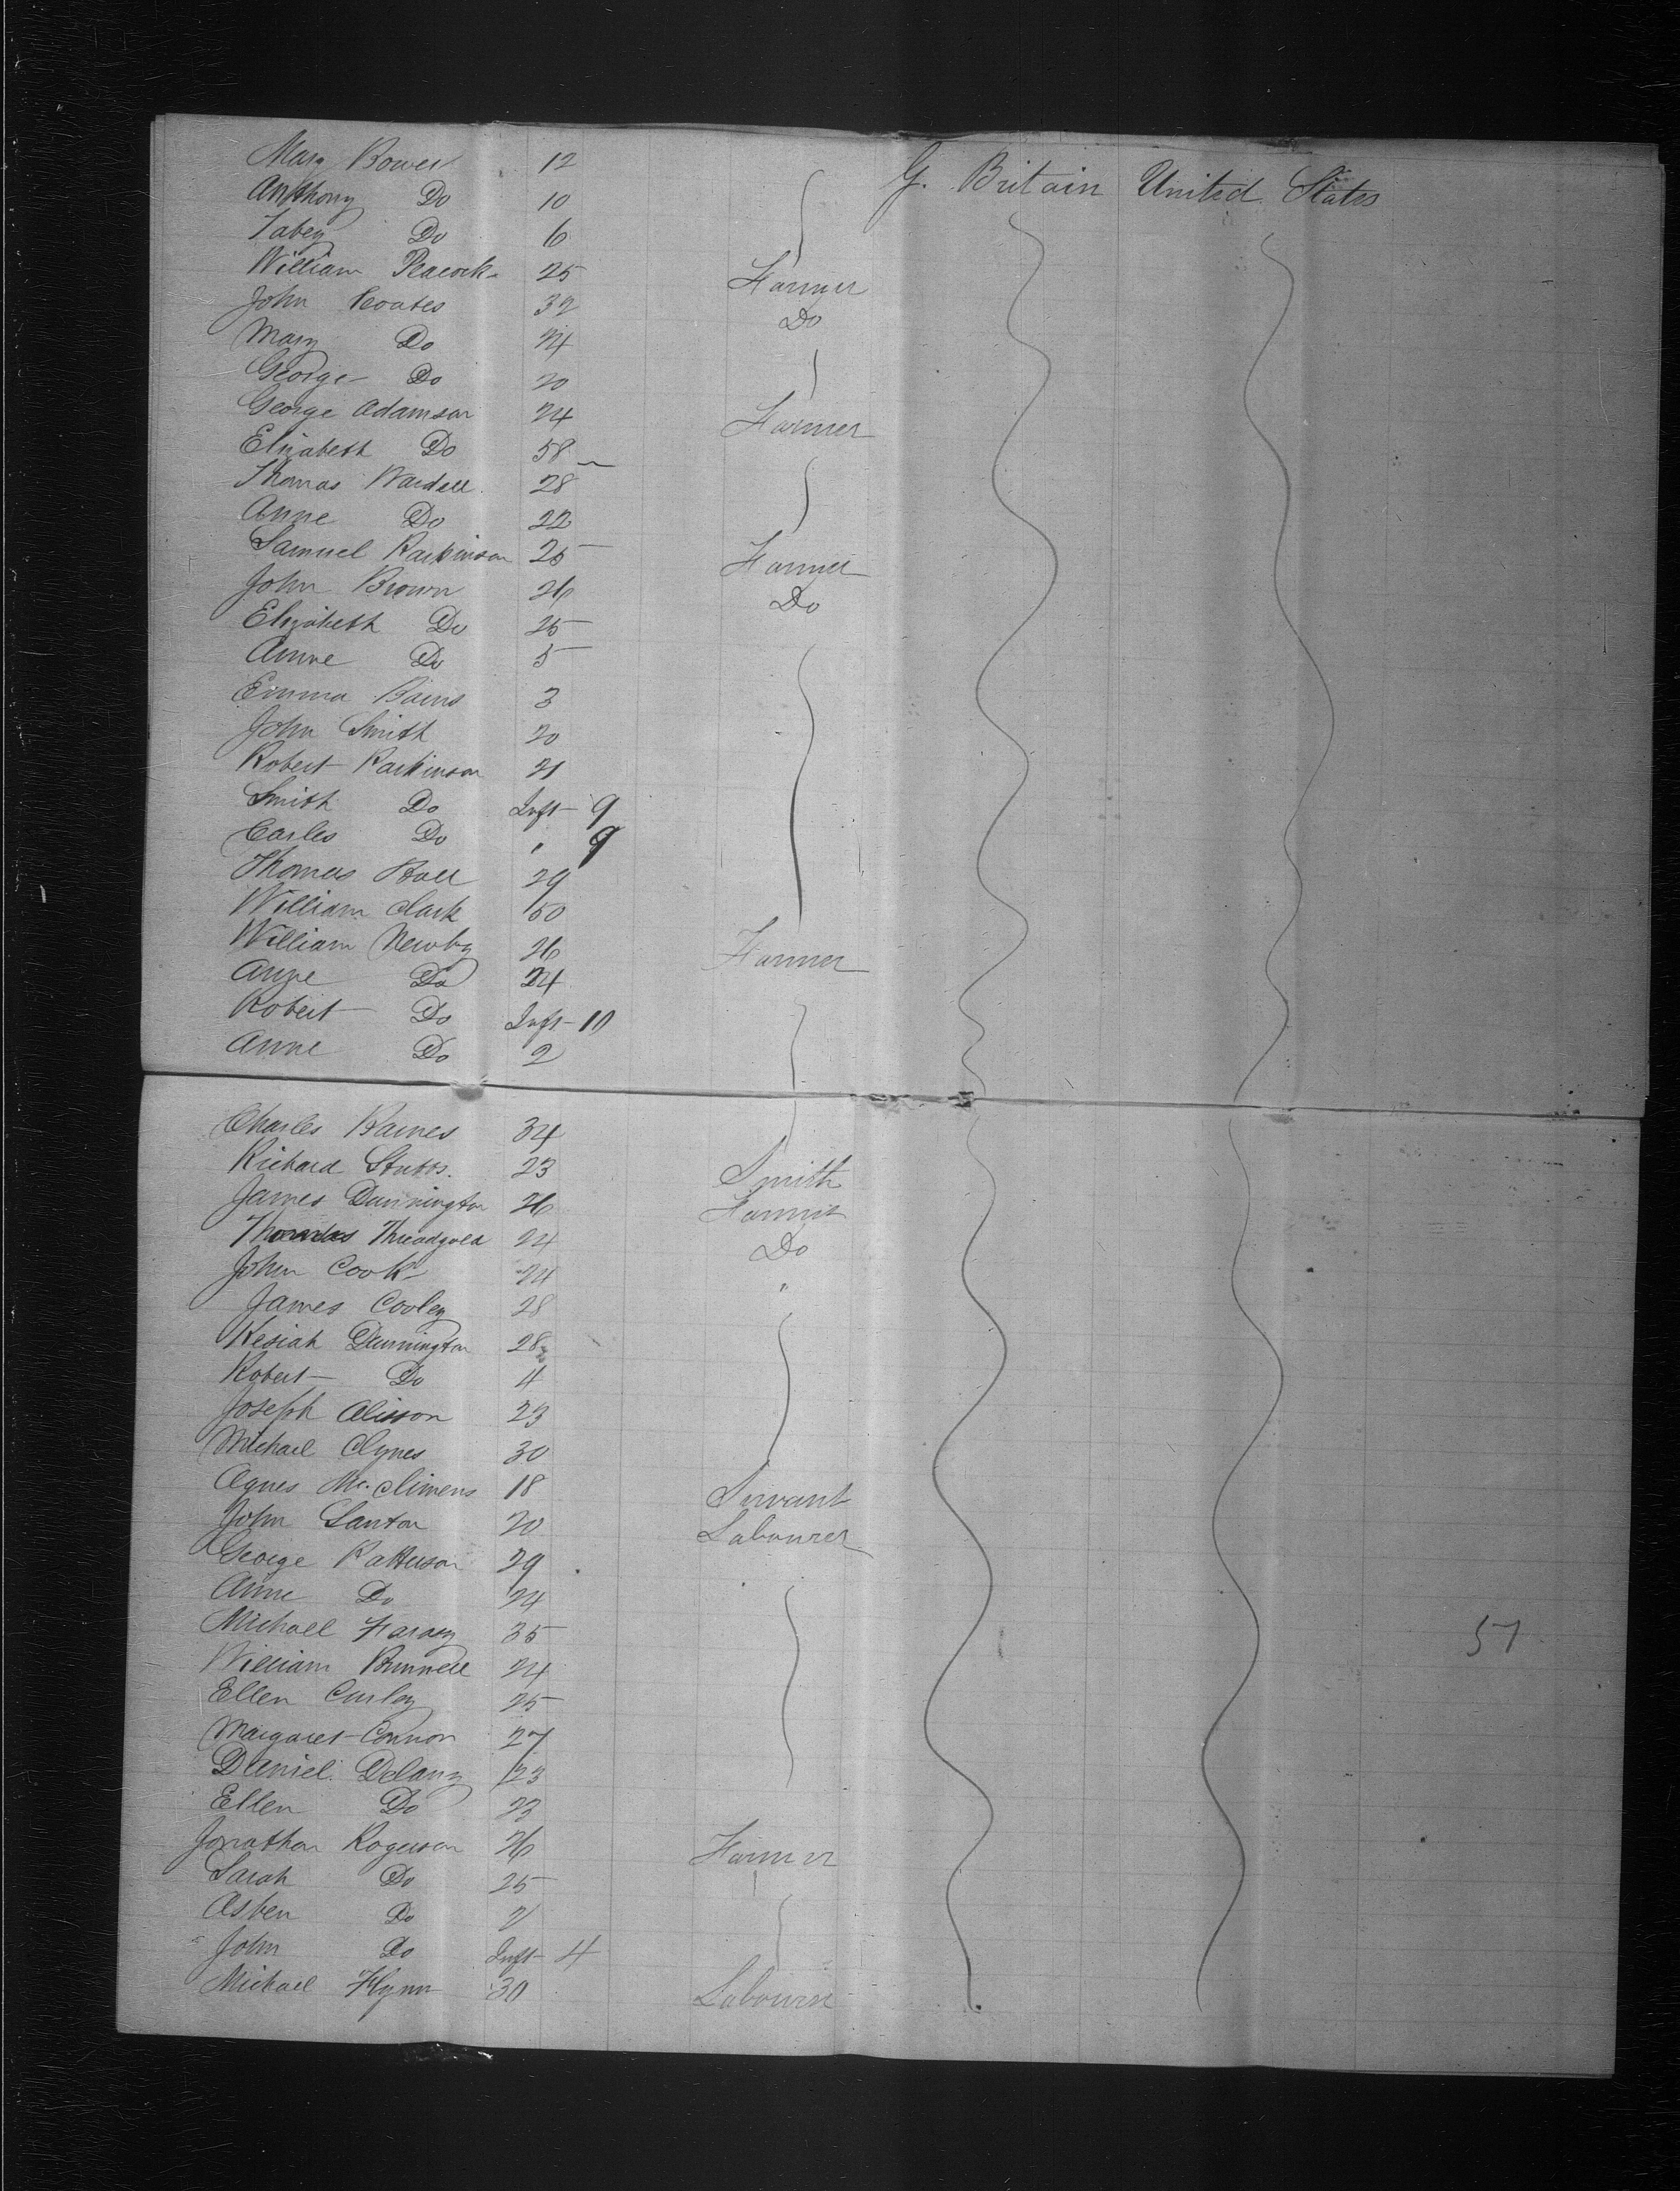 Mary Bower 12 G. Britain United States
Anthony Do 10
Tabey Do 6
William Peacock 25 Farmer
John Coates 32 Do
Mary Do 24
George Do 20
George Adamson 24 Farmer
Elizabeth Do 58
Thomas Wardell 28
Anne Do 22
Samuel Parkinson 25 Farmer
John Brown 26 Do
Elizabeth Do 25
Anne Do 5
Emma Bains 3
John Smith 20
Robert Parkinson 21
Smith Do Inft 9
Carles Do " 9
Thomas Hall 29
William Clark 50
William Newby 26 Farmer
Anne Do 24
Robert Do Inft 10
Anne Do 2
Charles Barnes 34
Richard Stubbs 23 Smith
James Dunnington 26 Farmer
Thomas Threadgold 24 Do
John Cook 24 "
James Cooley 28
Kesiah Dunnington 28
Robert Do 4
Joseph Alisson 23
Michael Clynes 30
Agnes Mc.Climens 18 Servant
John Santon 20 Labourer
George Patterson 29
Anne Do 24
Michael 35
William Bunnell 24 57
Ellen Curley 25
Margaret Connor 27
Daniel Delany 23
Ellen Do 23
Jonathan Rogerson 26 Farmer
Sarah Do 25
Do 2
John Do Inft 4
Michael Flynn 30 Labourer